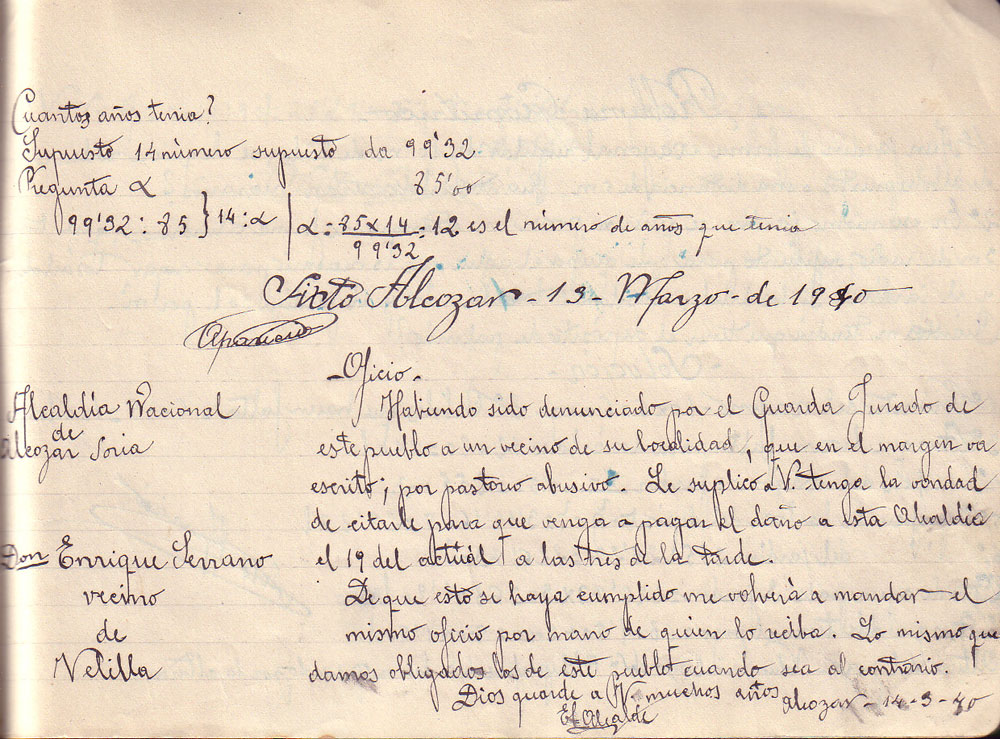 Cuantos años tenia?
Supuesto 14 número supuesto da 99'32
Pregunta α 85'00
99'32 : 85 } 14 : α | α = 85 x 14 / 99'32 = 12 es el número de años que tenia
Sixto Alcozar - 13 - Marzo - de 1940
Aparicio
- Oficio -
Alcaldía Nacional
de
Alcozar Soria
Don Enrique Serrano
vecino
de
Velilla
Habiendo sido denunciado por el Guarda Jurado de
este pueblo a un vecino de su localidad, que en el margen va
escrito; por pastoreo abusivo. Le suplico a V. tenga la vondad
de citarle para que venga a pagar el daño a esta Alcaldía
el 19 del actual a las tres de la tarde.
De que esto se haya cumplido me volverá a mandar el
mismo oficio por mano de quien lo reciba. Lo mismo que
damos obligados los de este pueblo cuando sea al contrario.
Dios guarde a V. muchos años Alcozar - 14 - 3 - 40
El Alcalde